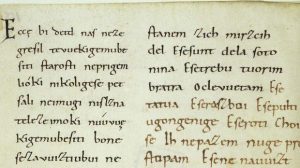 Eccę bi detd naſ neze
greſil tevuekigemube
ſiti ſtaroſti neprigem
lióki nikoligeſe pet
ſali neimugi niſlzna
teleſeimoki núúvue
kigemubeſiti bone
ſezavuiztiubui ne
ſtanem zich mirzcih
del Eſeſunt dela ſoto
nina Eſetrebu tuorim
bratra Oclevuetam Eſe
tatua Eſeraſboi Eſepulti
ugongenige Eſeroti Choi
ſe Ih nepazem nuge pre
ſtopam Eſene nauuiz